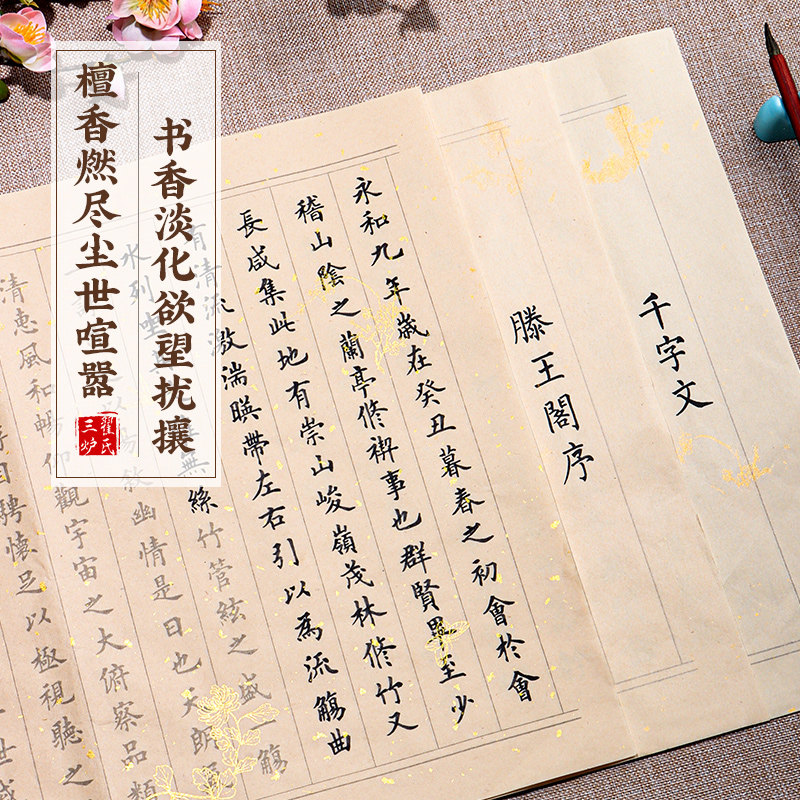 书香淡化欲望扰攘
檀香燃尽尘世喧嚣
翟氏
三炉
千字文
滕王閣序
永和九年歲在癸丑暮春之初會於會
稽山陰之蘭亭修禊事也群賢畢至少
長咸集此地有崇山峻嶺茂林修竹又
有清流激湍暎帶左右引以為流觴曲
水列坐無絲竹管絃之盛一觴
以暢敘幽情是日也天朗
清惠風和暢仰觀宇宙之大俯察品類
目騁懷足以極視聽之
世